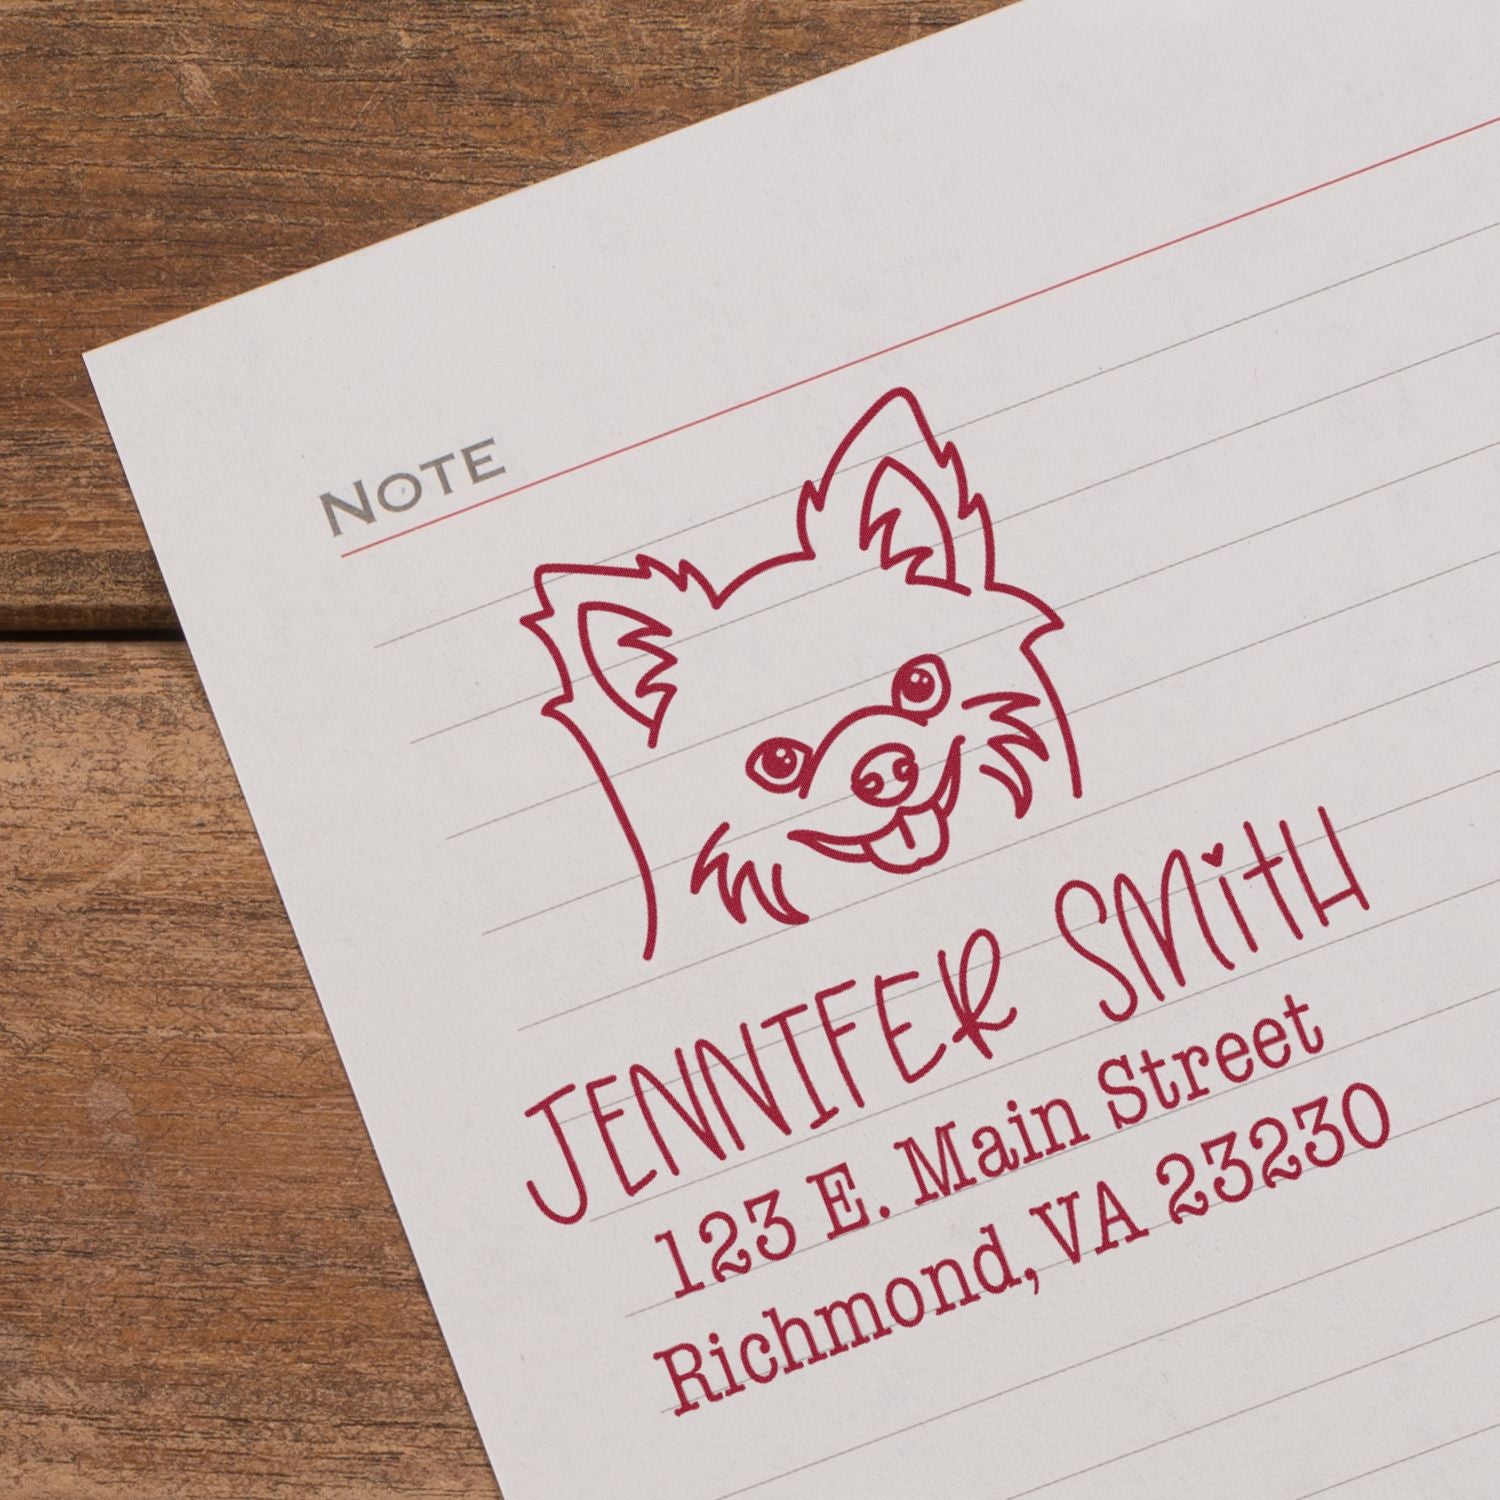 NOTE
JENNIFER SMiTH
123 E. Main Street
Richmond, VA 23230